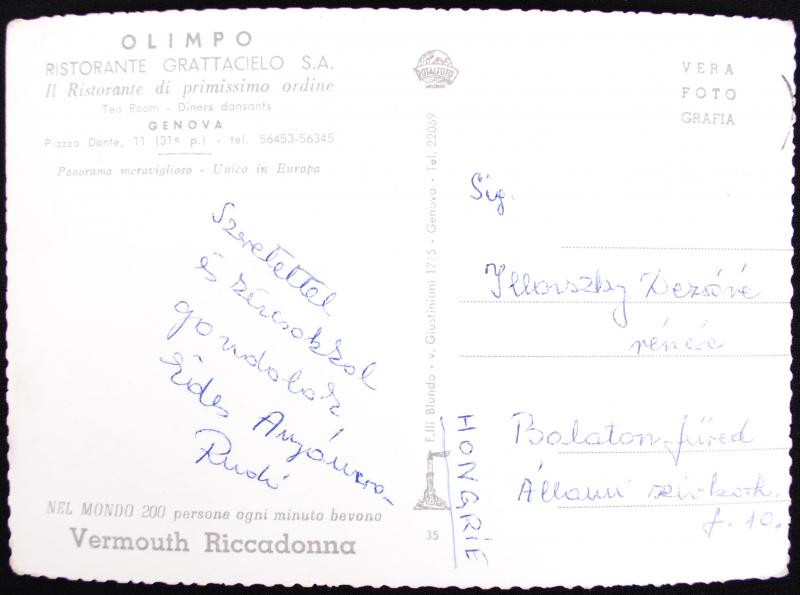 OLIMPO
RISTORANTE GRATTACIELO S.A.
Il Ristorante di primissimo ordine
Tea Room - Diners dansants
GENOVA
Piazza Dante, 11 (31° p.) - tel. 56453-56345
Panorama meraviglioso - Unico in Europa
Szeretettel
és
gondolok
Édes Anyámra
Rudi
NEL MONDO 200 persone ogni minuto bevono
Vermouth Riccadonna
F.lli Blundo - v. Giustiniani 17/5 - Genova - Tel. 22069
35
ROTALFOTO
VERA
FOTO
GRAFIA
Sig.
Illovszky Dezsőné
részére
HONGRIE
Balatonfüred
Állami szívkórh.
f. 10.